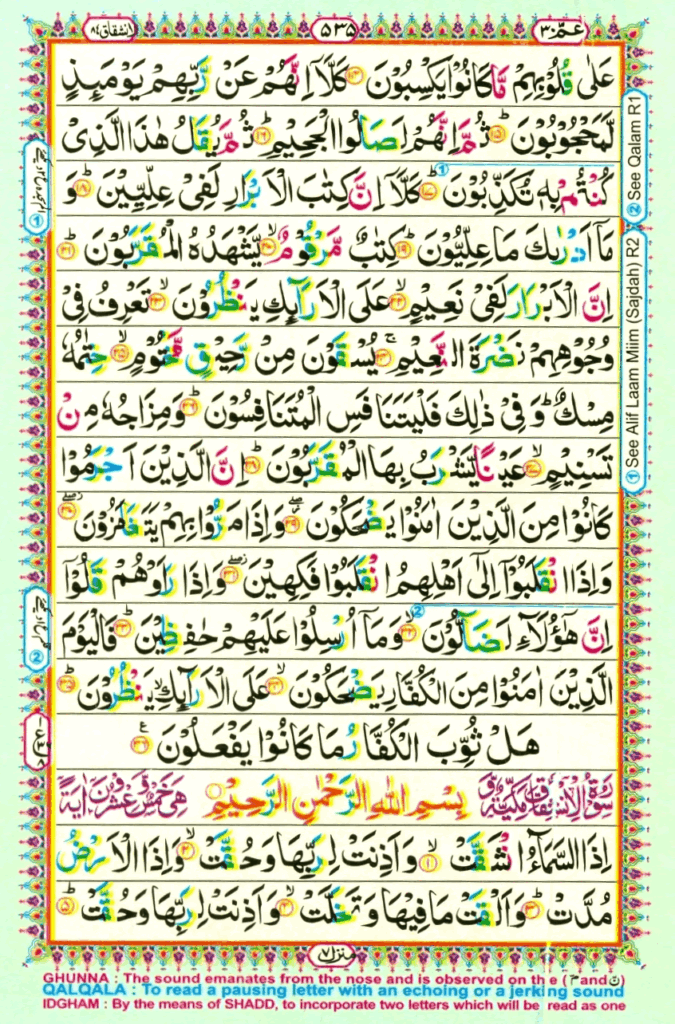 عمّ ٣٠
٥٣٥
الانشقاق ٨٤
عَلٰى قُلُوْبِهِمْ مَّا كَانُوْا يَكْسِبُوْنَ ﴿۱۴﴾ كَلَّاۤ اِنَّهُمْ عَنْ رَّبِّهِمْ يَوْمَئِذٍ
لَّمَحْجُوْبُوْنَ ؕ﴿۱۵﴾ ثُمَّ اِنَّهُمْ لَصَالُوا الْجَحِيْمِ ؕ﴿۱۶﴾ ثُمَّ يُقَالُ هٰذَا الَّذِىْ
كُنْتُمْ بِهٖ تُكَذِّبُوْنَ ؕ﴿۱۷﴾ كَلَّاۤ اِنَّ كِتٰبَ الْاَبْرَارِ لَفِىْ عِلِّيِّيْنَ ؕ﴿۱۸﴾ وَ
مَاۤ اَدْرٰىكَ مَا عِلِّيُّوْنَ ؕ﴿۱۹﴾ كِتٰبٌ مَّرْقُوْمٌ ۙ﴿۲۰﴾ يَّشْهَدُهُ الْمُقَرَّبُوْنَ ؕ﴿۲۱﴾
اِنَّ الْاَبْرَارَ لَفِىْ نَعِيْمٍ ۙ﴿۲۲﴾ عَلَى الْاَرَآئِكِ يَنْظُرُوْنَ ۙ﴿۲۳﴾ تَعْرِفُ فِىْ
وُجُوْهِهِمْ نَضْرَةَ النَّعِيْمِ ۚ﴿۲۴﴾ يُسْقَوْنَ مِنْ رَّحِيْقٍ مَّخْتُوْمٍ ۙ﴿۲۵﴾ خِتٰمُهٗ
مِسْكٌ ؕ وَفِىْ ذٰلِكَ فَلْيَتَنَافَسِ الْمُتَنَافِسُوْنَ ؕ﴿۲۶﴾ وَمِزَاجُهٗ مِنْ
تَسْنِيْمٍ ۙ﴿۲۷﴾ عَيْنًا يَّشْرَبُ بِهَا الْمُقَرَّبُوْنَ ؕ﴿۲۸﴾ اِنَّ الَّذِيْنَ اَجْرَمُوْا
كَانُوْا مِنَ الَّذِيْنَ اٰمَنُوْا يَضْحَكُوْنَ ۖ﴿۲۹﴾ وَاِذَا مَرُّوْا بِهِمْ يَتَغَامَزُوْنَ ۖ﴿۳۰﴾
وَاِذَا انْقَلَبُوْۤا اِلٰٓى اَهْلِهِمُ انْقَلَبُوْا فَكِهِيْنَ ۖ﴿۳۱﴾ وَاِذَا رَاَوْهُمْ قَالُوْۤا
اِنَّ هٰٓؤُلَآءِ لَضَآلُّوْنَ ۙ﴿۳۲﴾ وَمَاۤ اُرْسِلُوْا عَلَيْهِمْ حٰفِظِيْنَ ؕ﴿۳۳﴾ فَالْيَوْمَ
الَّذِيْنَ اٰمَنُوْا مِنَ الْكُفَّارِ يَضْحَكُوْنَ ۙ﴿۳۴﴾ عَلَى الْاَرَآئِكِ ۙ يَنْظُرُوْنَ ؕ﴿۳۵﴾
هَلْ ثُوِّبَ الْكُفَّارُ مَا كَانُوْا يَفْعَلُوْنَ ﴿۳۶﴾
سُوْرَةُ الْاِنْشِقَاقِ مَكِّيَّةٌ وَّ بِسْمِ اللّٰهِ الرَّحْمٰنِ الرَّحِيْمِ هِىَ خَمْسٌ وَّعِشْرُوْنَ اٰيَةً
اِذَا السَّمَآءُ انْشَقَّتْ ۙ﴿۱﴾ وَاَذِنَتْ لِرَبِّهَا وَحُقَّتْ ۙ﴿۲﴾ وَاِذَا الْاَرْضُ
مُدَّتْ ۙ﴿۳﴾ وَاَلْقَتْ مَا فِيْهَا وَتَخَلَّتْ ۙ﴿۴﴾ وَاَذِنَتْ لِرَبِّهَا وَحُقَّتْ ؕ﴿۵﴾
منزل ٧
② See Qalam R1
① See Alif Laam Miim (Sajdah) R2
GHUNNA : The sound emanates from the nose and is observed on the ( م and ن )
QALQALA : To read a pausing letter with an echoing or a jerking sound
IDGHAM : By the means of SHADD, to incorporate two letters which will be read as one